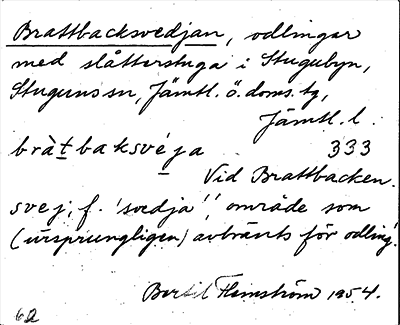 Brattbacksvedjan, odlingar
med slåtterstuga i Stugubyn,
Stuguns sn, Jämtl. ö. doms. tg,
Jämtl. l.
bràt̲baksvé̲ja 333
Vid Brattbacken.
svej, f. 'svedja', 'område som
(ursprungligen) avbränts för odling'.
Bertil Flemström 1954.
62